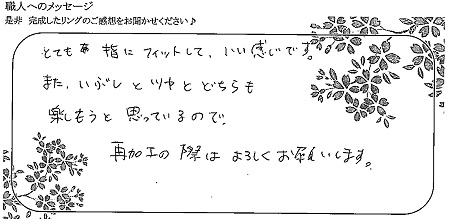 職人へのメッセージ
是非 完成したリングのご感想をお聞かせください♪
とても 指に フィットして、いい感じです。
また、いぶし と ツヤ と どちらも
楽しもうと 思っているので、
再加工の 際は よろしく お願いします。